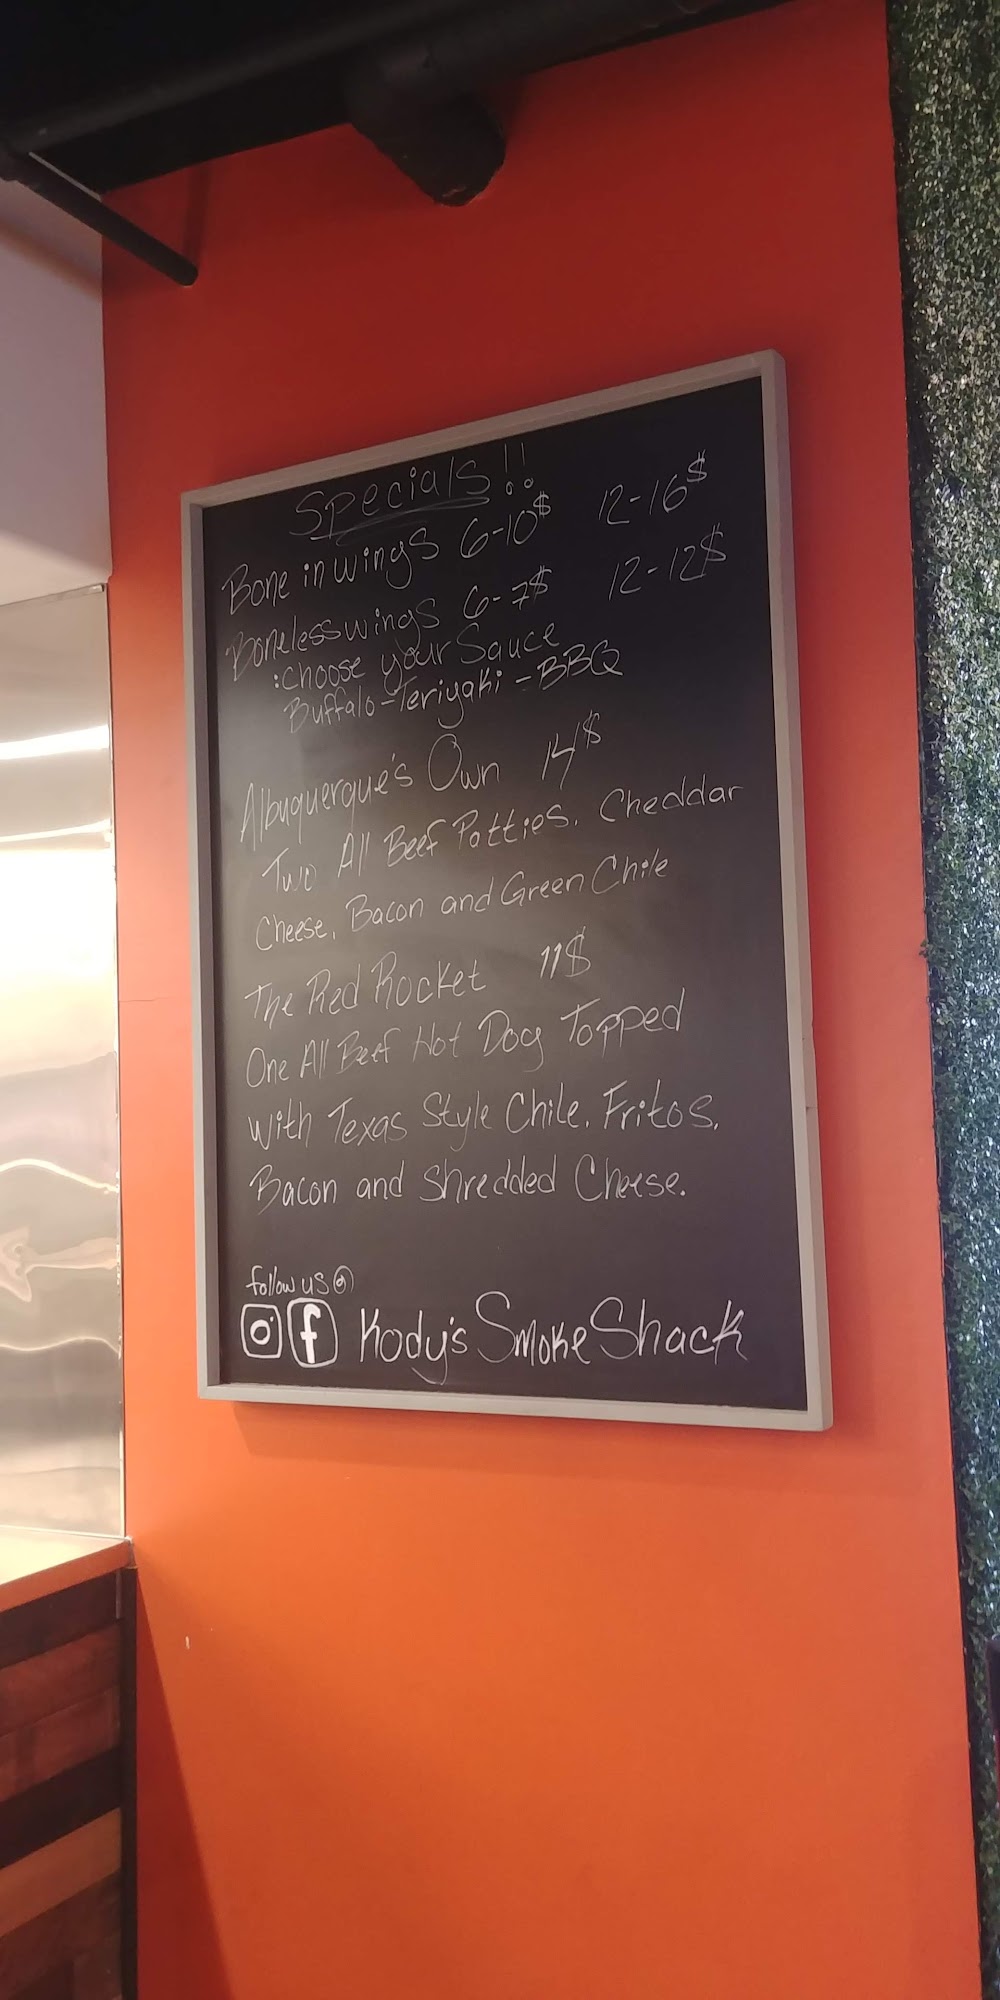 Specials!!
Bone in wings 6-10$ 12-16$
Boneless wings 6-7$ 12-12$
:choose your Sauce
Buffalo-Teriyaki-BBQ
Albuquerque's Own 14$
Two All Beef Patties. Cheddar
Cheese. Bacon and Green Chile
The Red Rocket 11$
One All Beef Hot Dog Topped
with Texas Style Chile. Fritos.
Bacon and Shredded Cheese.
follow us @
f Kody's Smoke Shack